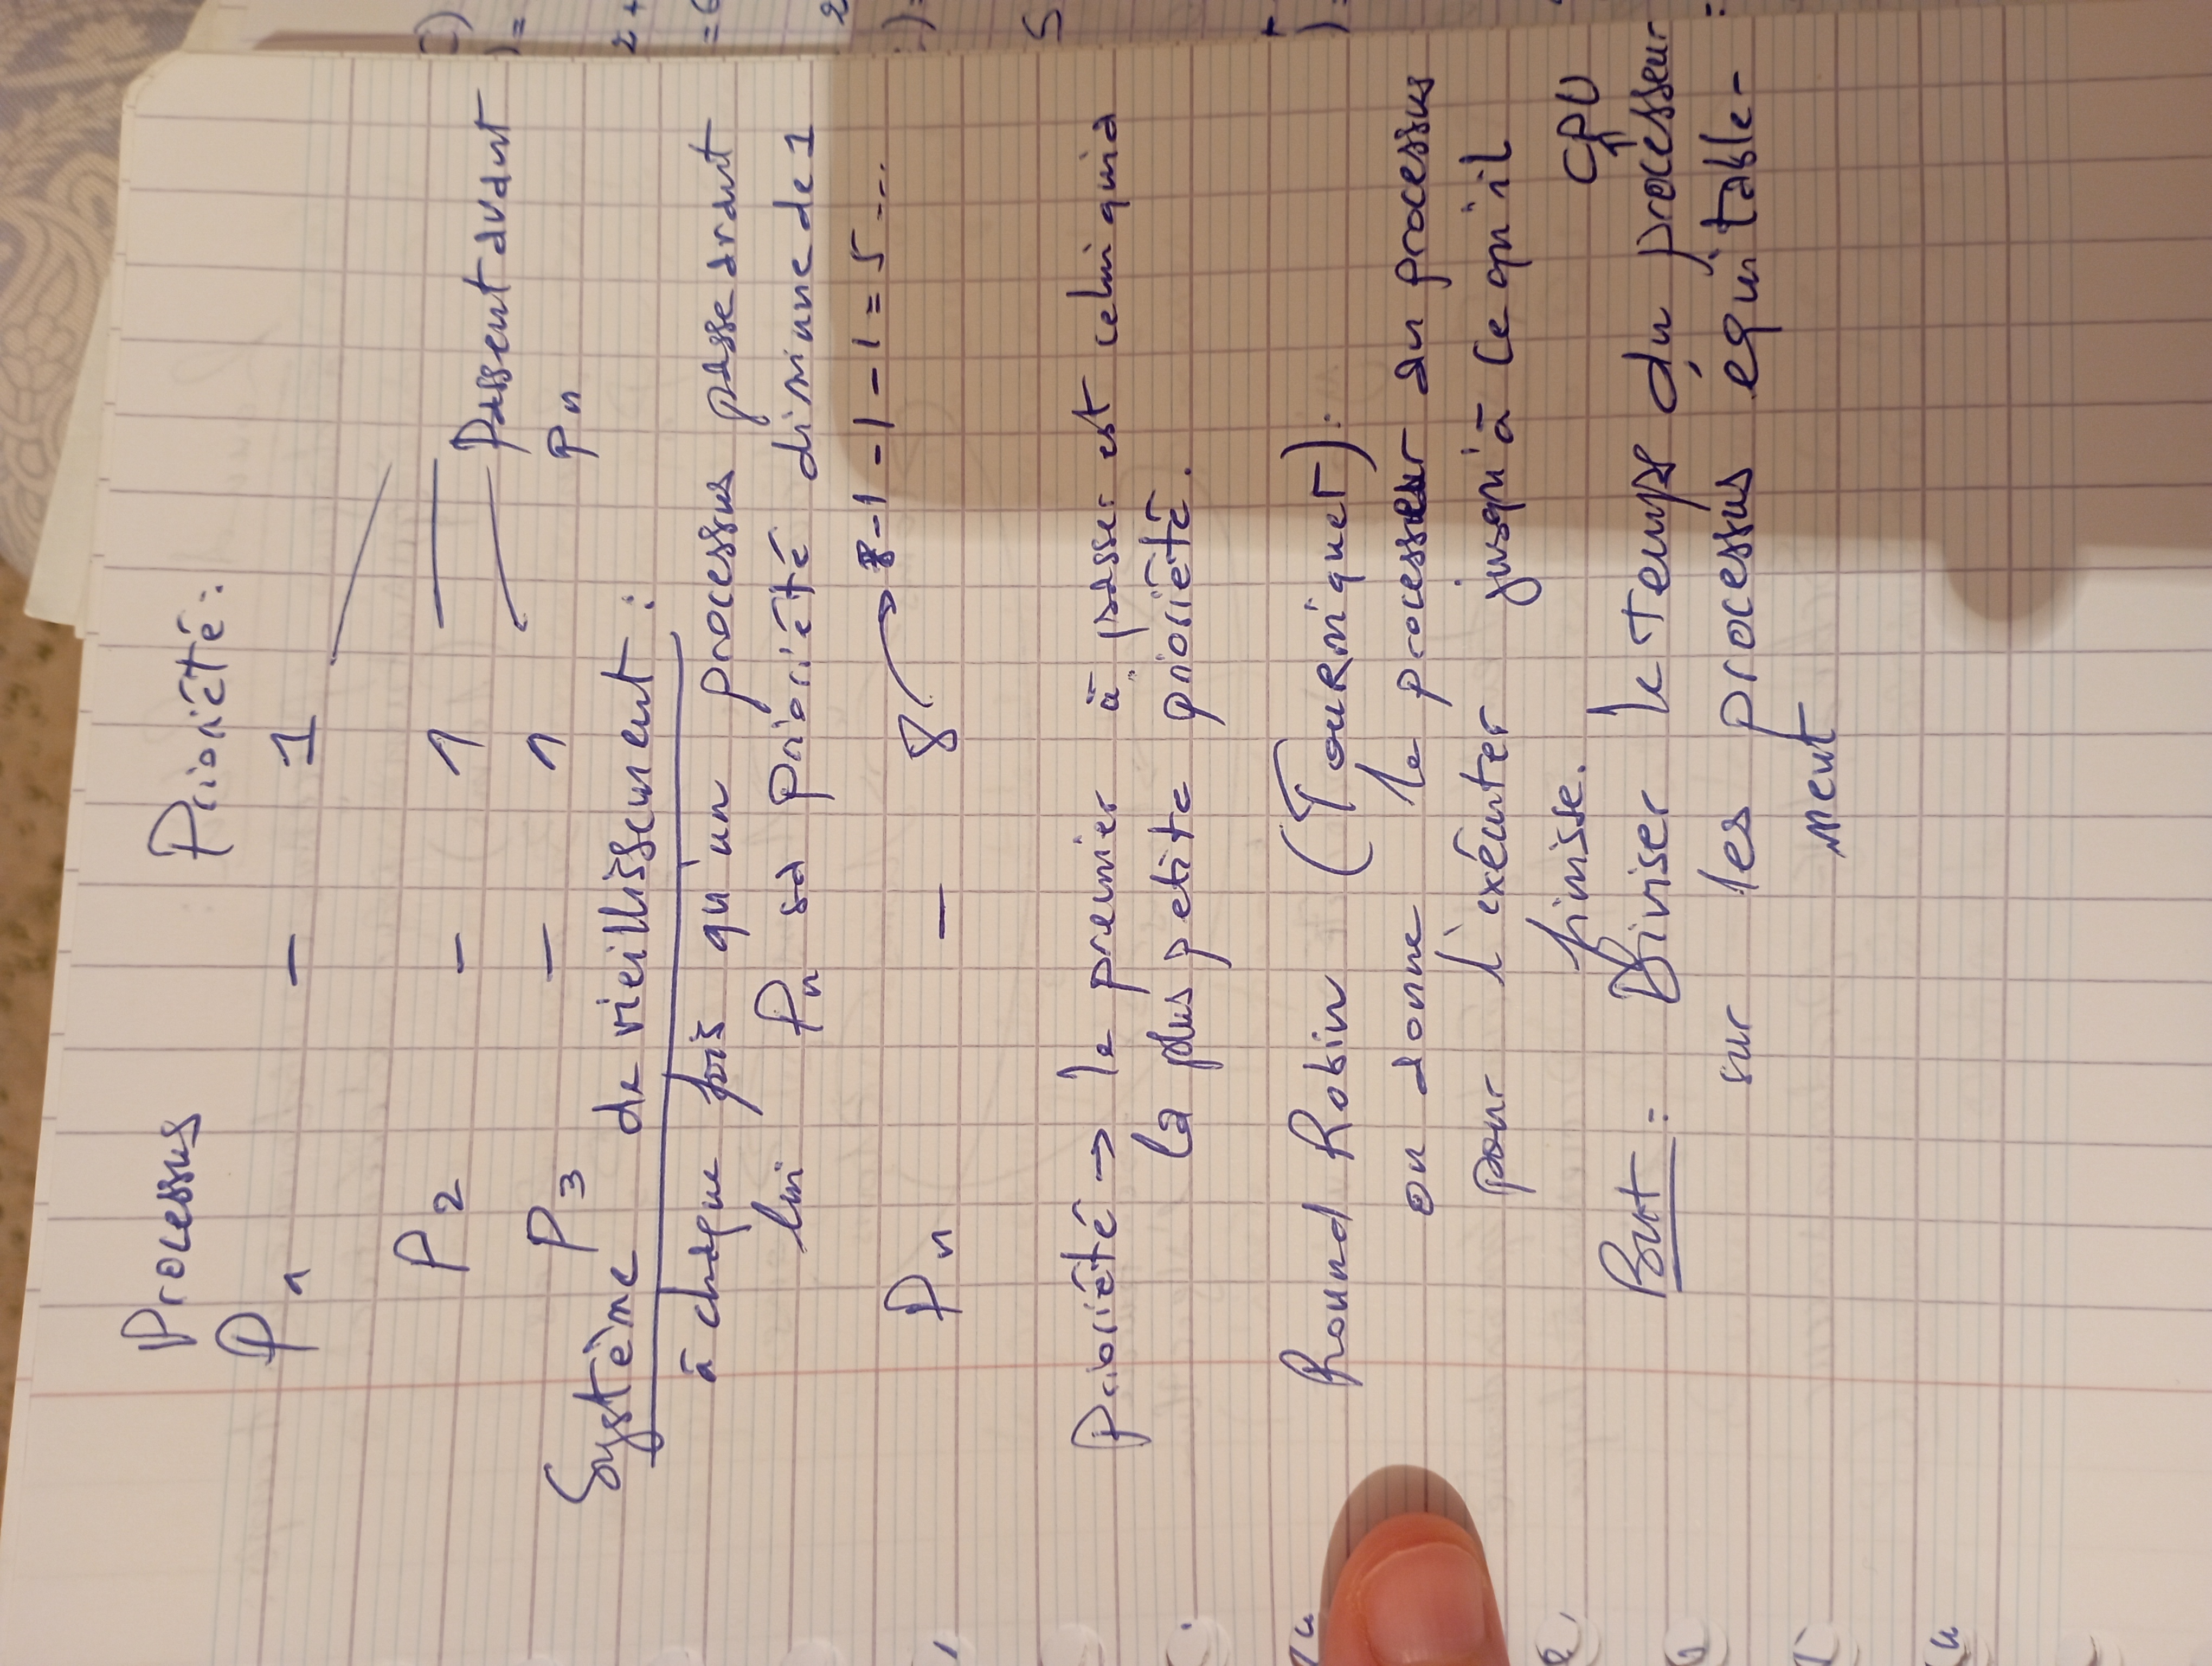 Processus Prioriété:
P1 - 1
P2 - 1
Passent avant
P3 - 1
Pn
Système de vieillissement :
à chaque fois qu'un processus passe avant
lui Pn sa prioriété diminue de 1
8-1-1-1=5...
Pn - 8
Prioriété → le premier à passer est celui qui a
la plus petite prioriété.
Round Robin (Tourniquet):
on donne le processeur au processus
pour l'exécuter jusqu'à ce qu'il
finisse.
CPU
But : Diviser le temps du processeur
sur les processus équitable-
ment